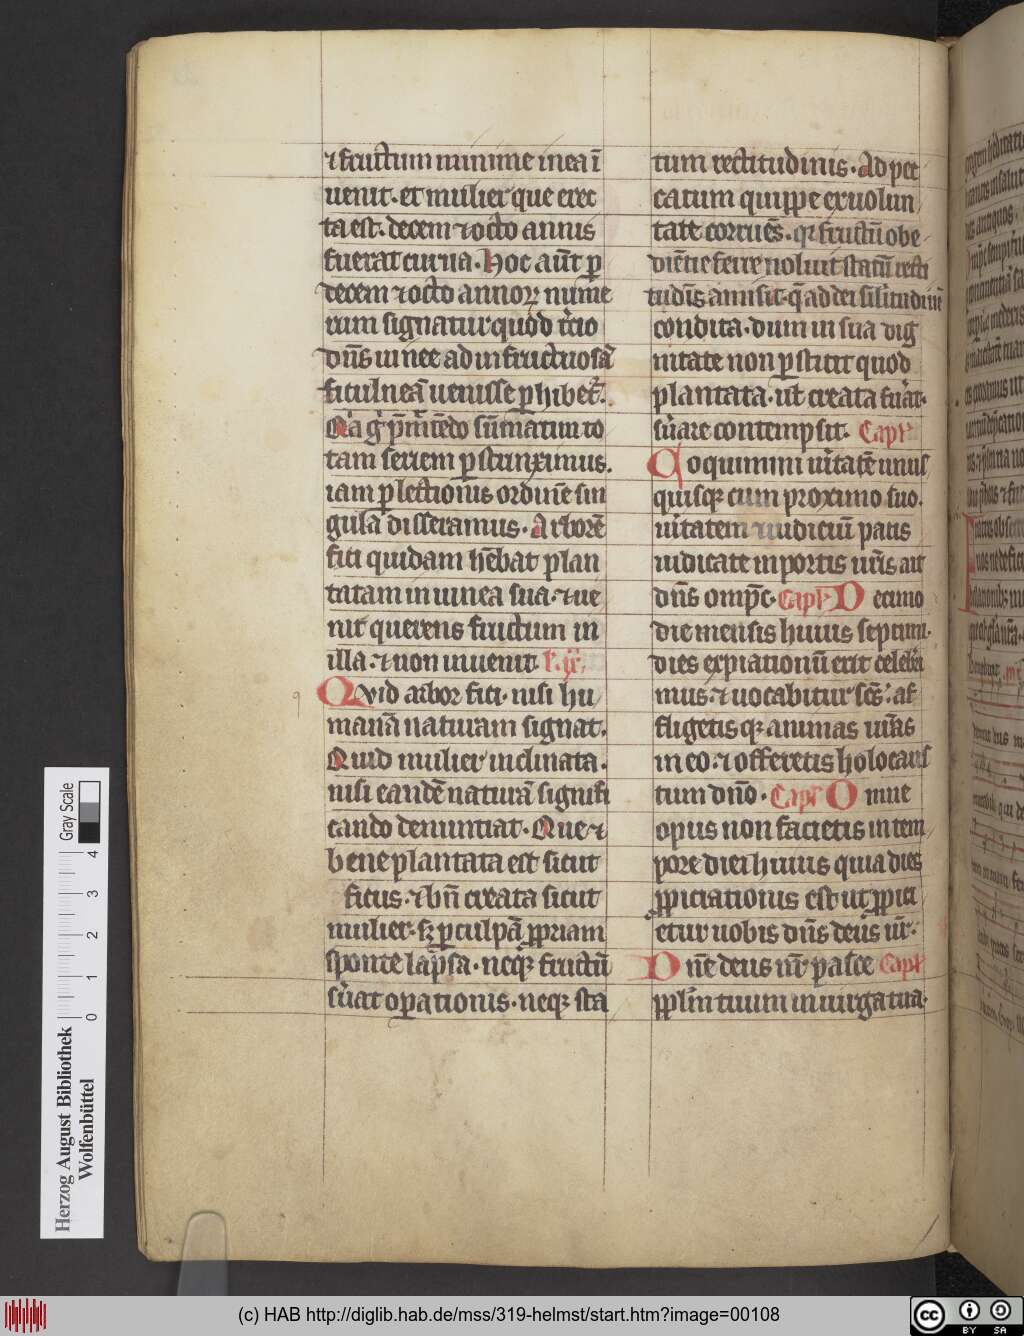 ⁊ fructum minime in ea ī
uenit · et mulier que erec
ta est · decem ⁊ octo annis
fuerat curua · Hoc aūt ꝑ
decem ⁊ octo annoꝝ nume
rum signatur quod t͛cio
dn̄s iu nee ad infructuosā
ficulneā uenisse ꝑhibet͛ ·
Qͥa gͦ p͛mit͛edo sūmatim to
tam seriem ꝑstrinximus ·
iam ꝑ lectionis ordinē sin
gula disseramus · Arborē
fici quidam hēbat plan
tatam in uinea sua · ⁊ ue
nit querens fructum in
illa · ⁊ non inuenit
Qvid arbor fici · nisi hu
manā naturam signat ·
Quid mulier inclinata ·
nisi eandē naturā signifi
cando denuntiat · Que ⁊
bene plantata est sicut
ficus · ⁊ bn̄ creata sicut
mulier · sꝫ ꝑ culpā ꝓpriam
sponte lapsa · neqꝫ fructū
s͛uat oꝑationis · neqꝫ sta
tum rectitudinis · Ad pec
catum quippe ex uolun
tate corruēs · qͥ fructū obe
dientie ferre noluit statū recti
tudīs amisit · q̄ ad dei sil͛itudinē
condita · dum in sua dig
nitate non ꝑstitit quod
plantata · ul͛ creata fu͛at ·
s͛uare contempsit · Capl͛
Loquimini u͛itatē unus
quisqꝫ cum proximo suo ·
u͛itatem ⁊ iudiciū pacis
iudicate in portis ur͛is ait
dn̄s omp̄c · Capl͛ Decimo
die mensis huius septimi ·
dies expiationū erit celeb͛ri
mus · ⁊ uocabitur sc̄s · af
fligetis qꝫ animas ur͛as
in eo · ⁊ offeretis holocaus
tum dn̄o · Capl͛ Omne
opus non facietis in tem
pore diei huius quia dies
ꝓpiciationis est ut ꝓpici
etur uobis dn̄s deus ur͛ ·
Dn̄e deus nr͛ pasce Capl͛
ppl̄m tuum in uirga tua ·
Herzog August Bibliothek
Wolfenbüttel
0 1 2 3 4
Gray Scale
(c) HAB http://diglib.hab.de/mss/319-helmst/start.htm?image=00108
cc BY SA